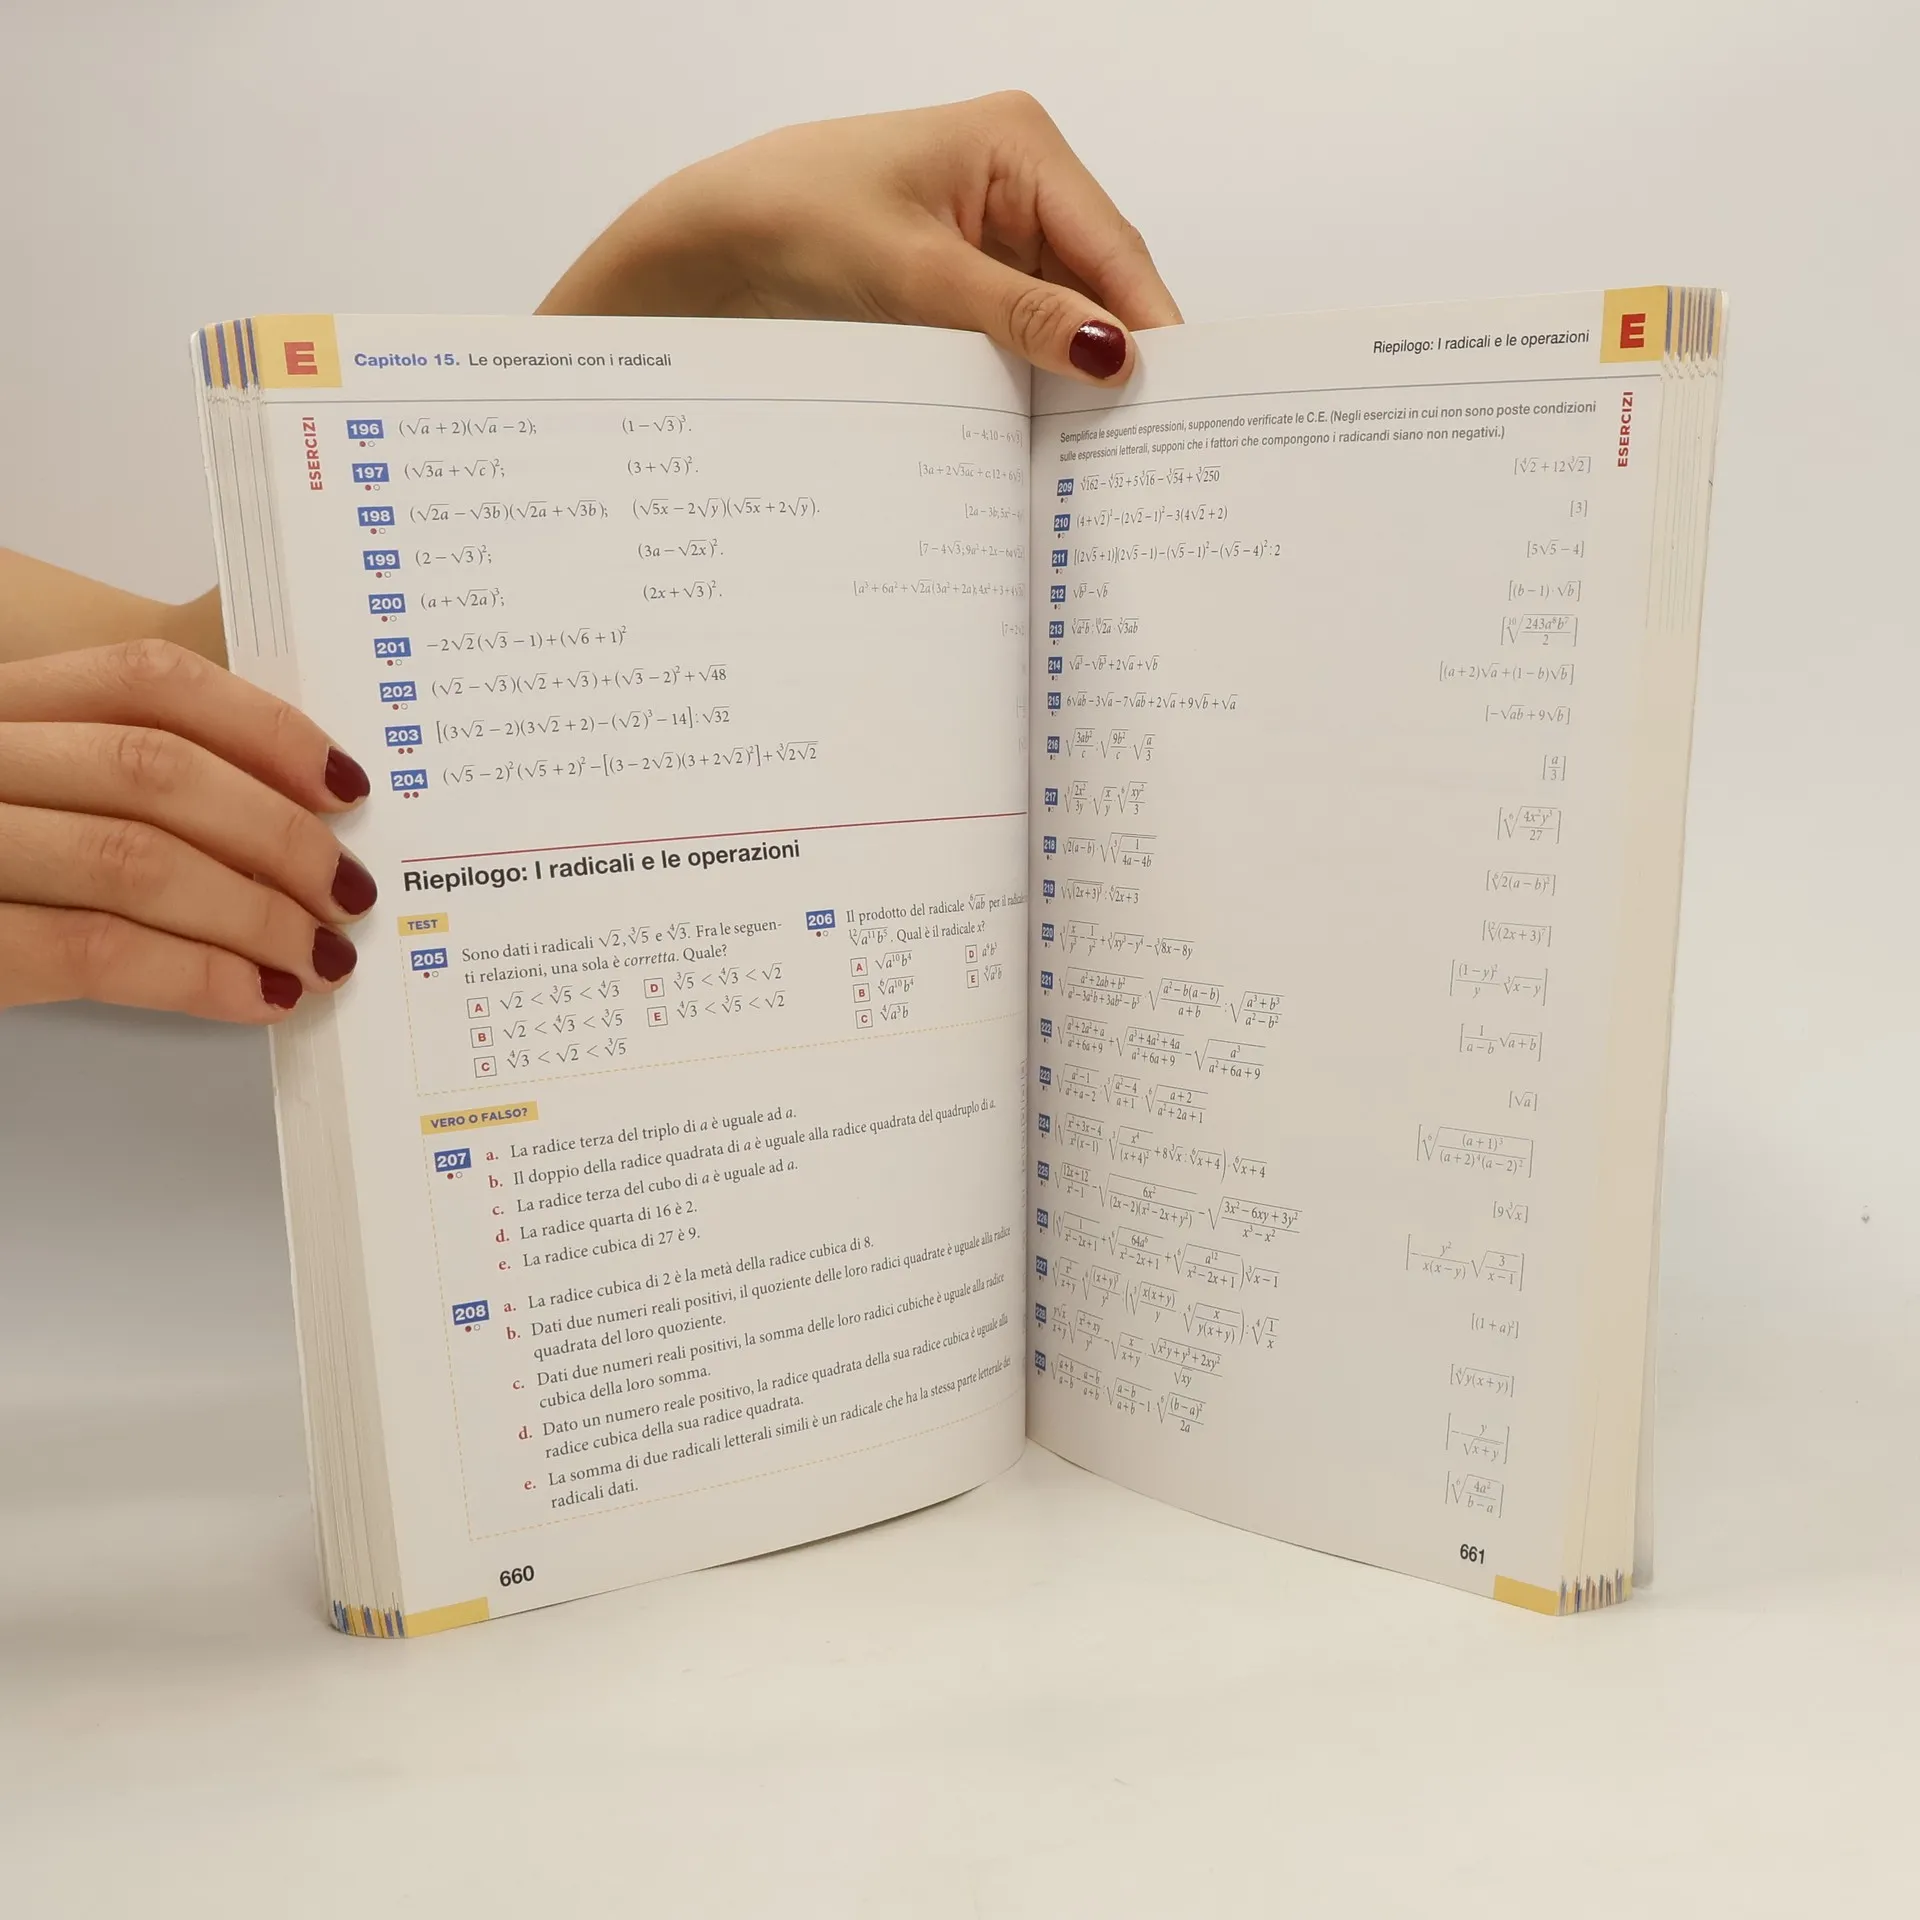 E
Capitolo 15. Le operazioni con i radicali
ESERCIZI
196 (√a + 2)(√a − 2); (1 − √3)³. [a − 4; 10 − 6√3]
197 (√3a + √c)²; (3 + √3)². [3a + 2√3ac + c; 12 + 6√3]
198 (√2a − √3b)(√2a + √3b); (√5x − 2√y)(√5x + 2√y). [2a − 3b; 5x
199 (2 − √3)²; (3a − √2x)². [7 − 4√3; 9a² + 2x − 6a√2x
200 (a + √2a)³; (2x + √3)². [a³ + 6a² + √2a(3a² + 2a); 4x² + 3 + 4
201 −2√2(√3 − 1) + (√6 + 1)² [7
202 (√2 − √3)(√2 + √3) + (√3 − 2)² + √48
203 [(3√2 − 2)(3√2 + 2) − (√2)³ − 14] : √32
204 (√5 − 2)²(√5 + 2)² − [(3 − 2√2)(3 + 2√2)²] + ∛2√2
Riepilogo: I radicali e le operazioni
TEST
205 Sono dati i radicali √2, ∛5 e ∜3. Fra le seguen-
ti relazioni, una sola è corretta. Quale?
A √2 < ∛5 < ∜3
B √2 < ∜3 < ∛5
C ∜3 < √2 < ∛5
D ∛5 < ∜3 < √2
E ∜3 < ∛5 < √2
206 Il prodotto del radicale ⁶√ab per il radicale
¹²√a¹¹b⁵. Qual è il radicale x?
A √a¹⁰b⁴
B ⁶√a¹⁰b⁴
C ∜a³b
D a⁶b³
E a³b
VERO O FALSO?
207 a. La radice terza del triplo di a è uguale ad a.
b. Il doppio della radice quadrata di a è uguale alla radice quadrata del quadruplo di a.
c. La radice terza del cubo di a è uguale ad a.
d. La radice quarta di 16 è 2.
e. La radice cubica di 27 è 9.
208 a. La radice cubica di 2 è la metà della radice cubica di 8.
b. Dati due numeri reali positivi, il quoziente delle loro radici quadrate è uguale alla radice
quadrata del loro quoziente.
c. Dati due numeri reali positivi, la somma delle loro radici cubiche è uguale alla radice
cubica della loro somma.
d. Dato un numero reale positivo, la radice quadrata della sua radice cubica è uguale alla
radice cubica della sua radice quadrata.
e. La somma di due radicali letterali simili è un radicale che ha la stessa parte letterale dei
radicali dati.
660
Riepilogo: I radicali e le operazioni
E
ESERCIZI
Semplifica le seguenti espressioni, supponendo verificate le C.E. (Negli esercizi in cui non sono poste condizioni
sulle espressioni letterali, supponi che i fattori che compongono i radicandi siano non negativi.)
209 ∜162 − ∜32 + 5∛16 − ∛54 + ∛250 [∜2 + 12∛2]
210 (4 + √2)² − (2√2 − 1)² − 3(4√2 + 2) [3]
211 [(2√5 + 1)(2√5 − 1) − (√5 − 1)² − (√5 − 4)² : 2 [5√5 − 4]
212 √b³ − √b [(b − 1) · √b]
213 [¹⁰√243a⁸b⁷/2]
214 √a³ − √b³ + 2√a + √b [(a + 2)√a + (1 − b)√b]
215 6√ab − 3√a − 7√ab + 2√a + 9√b + √a [−√ab + 9√b]
216 √3ab²/c : √9b²/c · √a/3 [a/3]
217 ∛2x²/3y · √x/y · ⁶√xy²/3 [⁶√4x²y³/27]
218 √2(a − b) · √∛1/4a − 4b [⁶√2(a − b)²]
219 : ⁶√2x + 3 [¹²√(2x + 3)⁷]
220 ∛x/y³ − 1/y² + ∛xy³ − y⁴ − ∛8x − 8y [(1 − y)²/y ∛x − y]
221 √a² + 2ab + b²/a³ − 3a²b + 3ab² − b³ · √a² − b(a − b)/a + b : √a³ + b³/a² − b² [1/a − b √a + b]
222 √a³ + 2a² + a/a² + 6a + 9 + √a³ + 4a² + 4a/a² + 6a + 9 − √a³/a² + 6a + 9 [√a]
223 √a² − 1/a² + a − 2 · ∛a² − 4/a + 1 · ⁶√a + 2/a² + 2a + 1 [⁶√(a + 1)³/(a + 2)⁴(a − 2)²]
224 [9∛x]
225 √12x + 12/x² − 1 − √6x²/(2x − 2)(x² − 2x + y²) − √3x² − 6xy + 3y²/x³ − x² [− y²/x(x − y) √3/x − 1]
226 [(1 + a)²]
227 [∜y(x + y)]
228 [− y/√x + y]
229 [⁶√4a²/b − a]
661